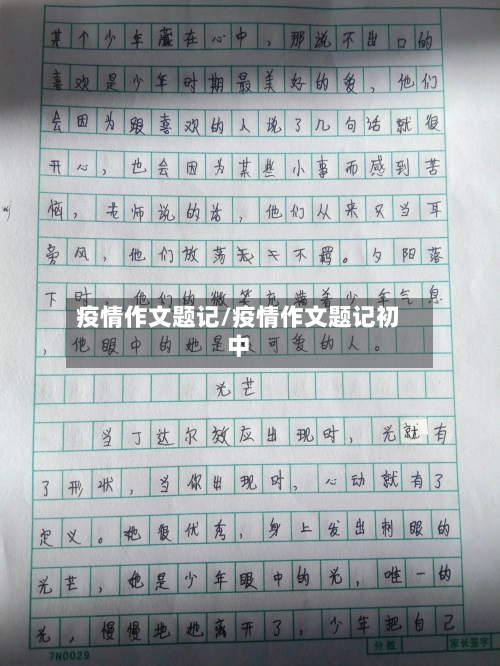 某个少年藏在心中，那说不出口的
喜欢是少年时期最美好的爱，他们
会因为跟喜欢的人说了几句话就很
开心，也会因为某些小事而感到苦
恼，老师说的话，他们从来只当耳
旁风，他们放荡无不羁。夕阳落
下时，他们的微笑充满着少年气息
疫情作文题记/疫情作文题记初
中
，他眼中的她是最可爱的人。
光芒
当丁达尔效应出现时，光就有
了形状，当你出现时，心动就有了
定义。她很优秀，身上发出刺眼的
光芒，她是少年眼中的光，唯一的
光，慢慢地她离开了，少年把自己
7N0029
分数
家长签字